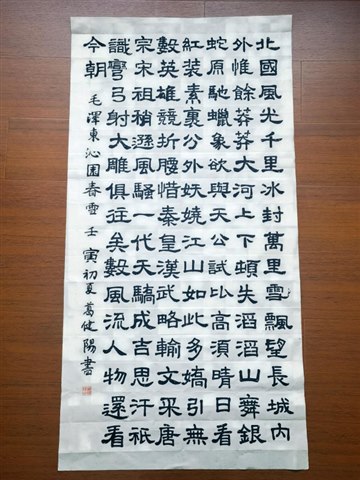 北國風光千里冰封萬里雪飄望長城内
外惟餘莽莽大河上下頓失滔滔山舞銀
蛇原馳蠟象欲與天公試比高須晴日看
紅裝素裹公外妖嬈江山如此多嬌引無
數英雄競折腰惜秦皇漢武略輸文采唐
宗宋祖稍遜風騷一代天驕成吉思汗祇
識彎弓射大雕俱往矣數風流人物還看
今朝
毛澤東沁園春雪壬寅初夏葛健陽書